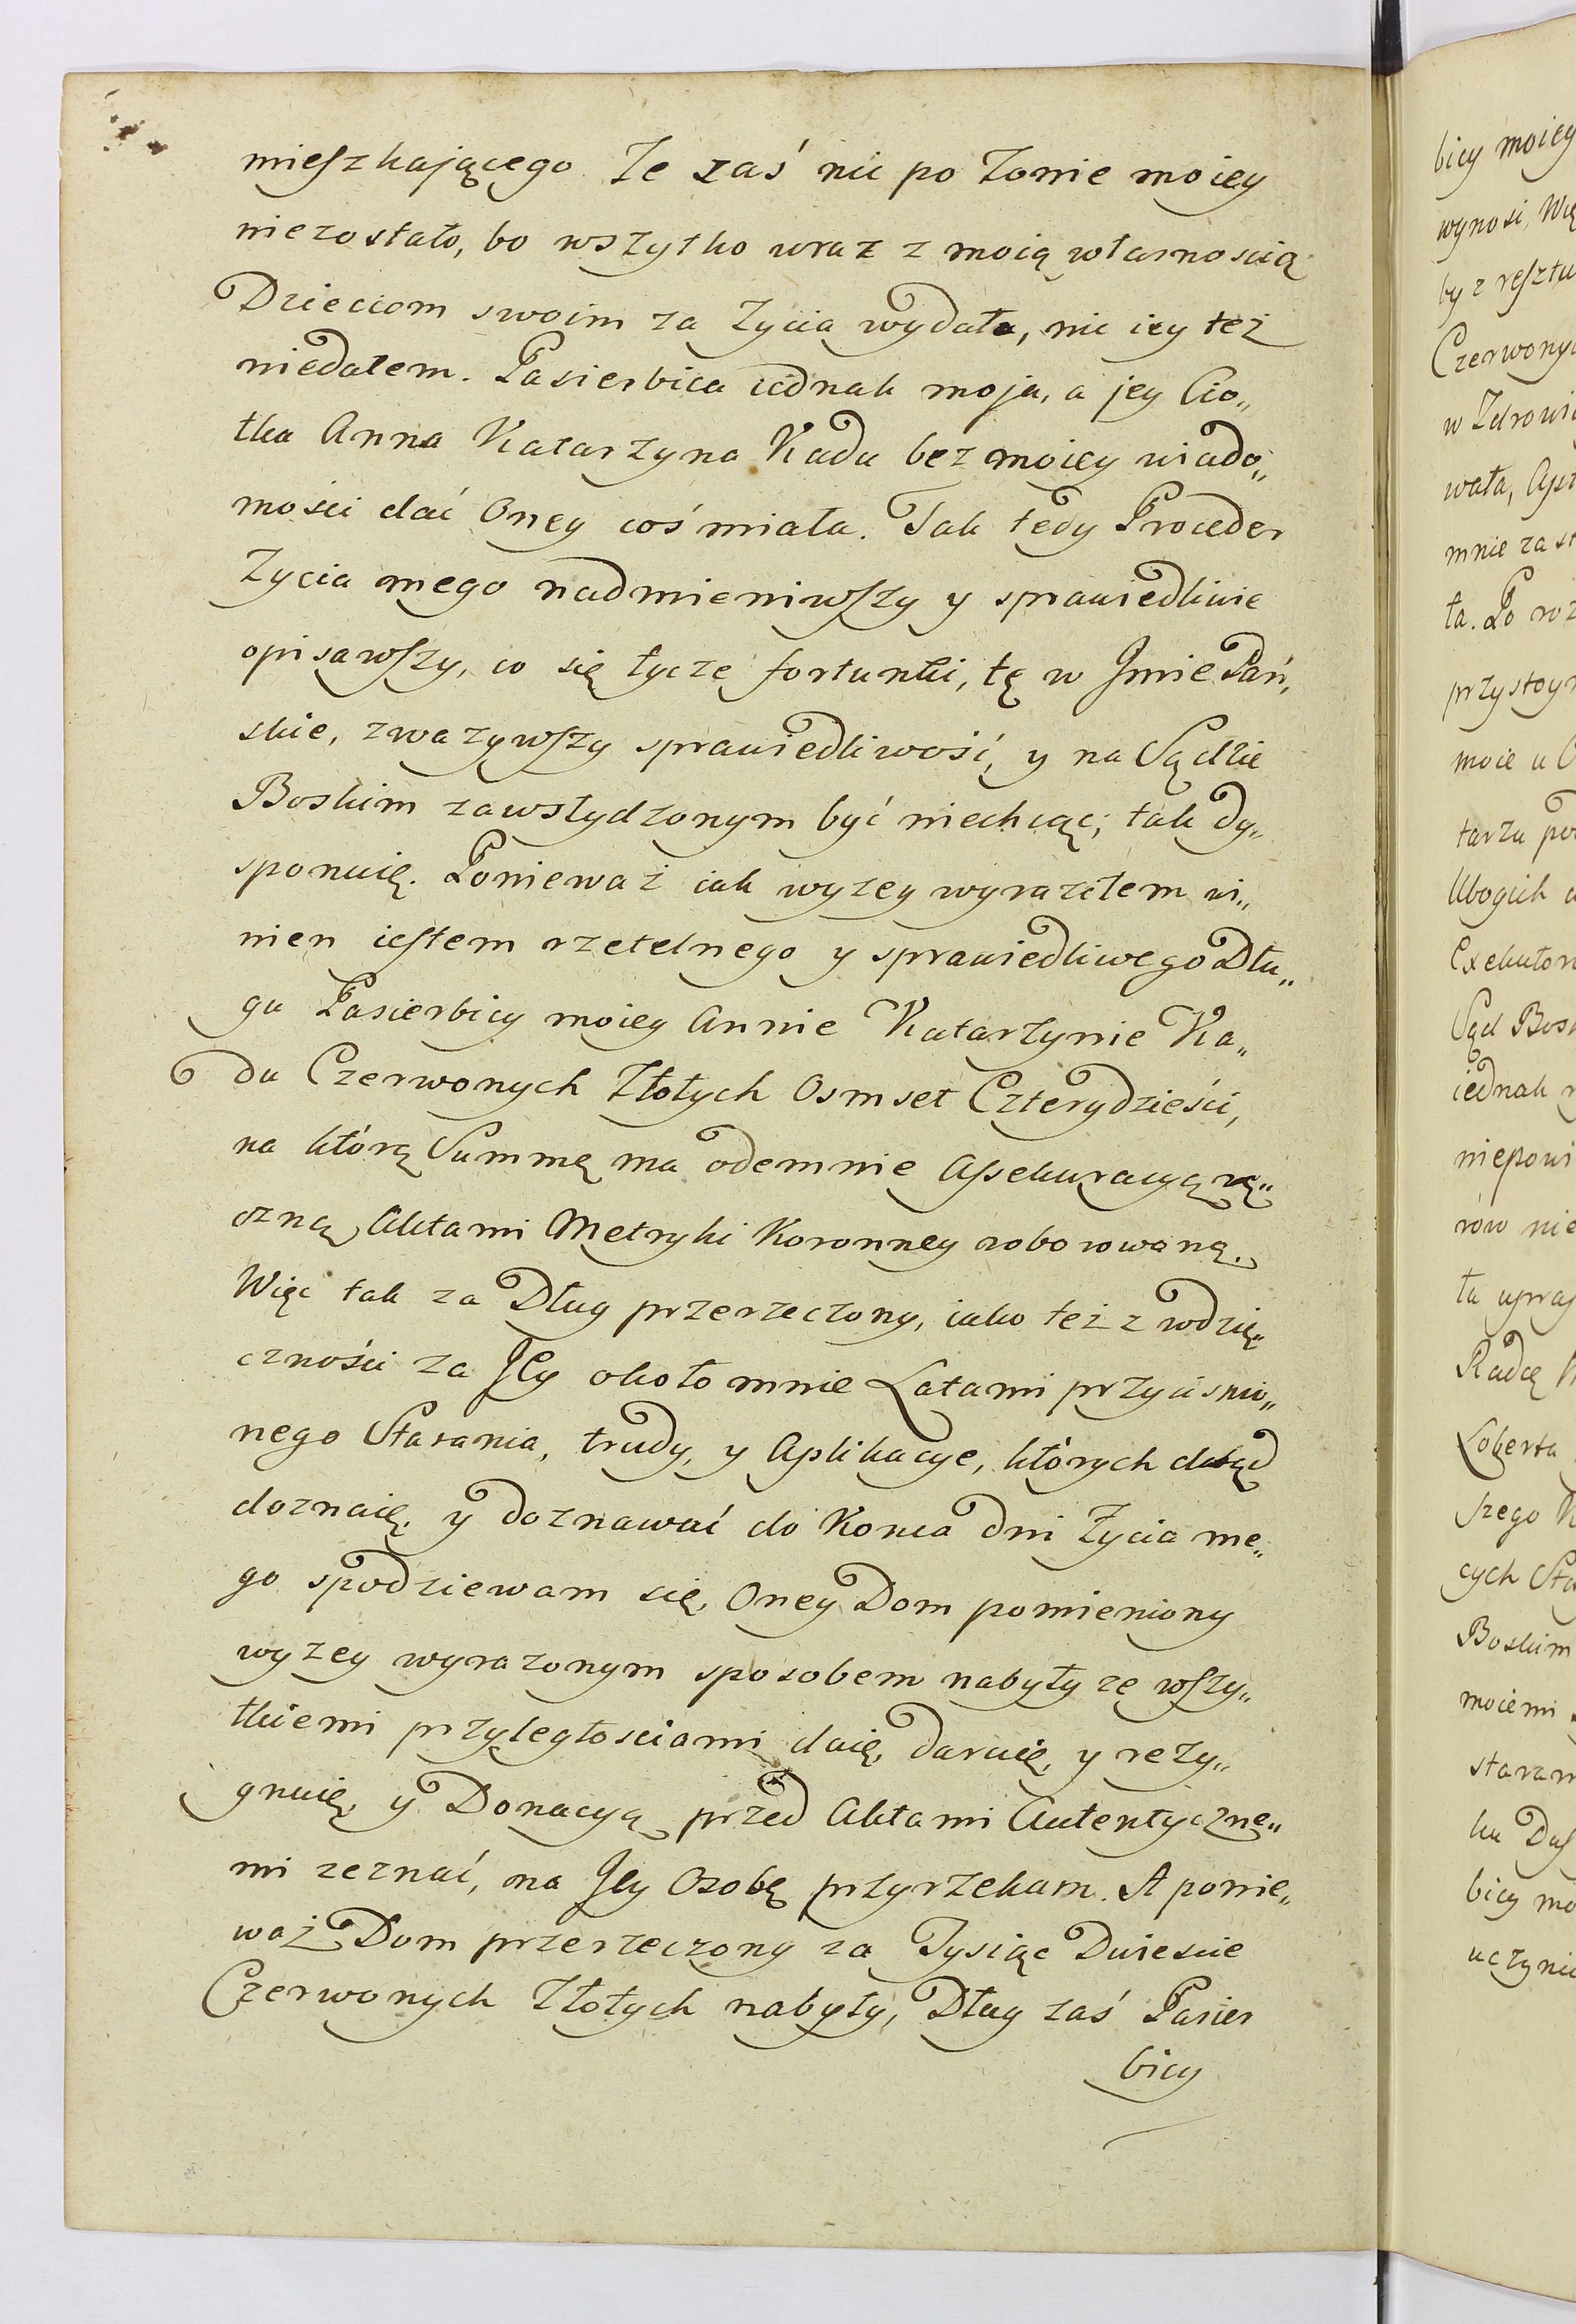 mieszkającego Że zaś nic po Żonie moiey
niezostało, bo wszytko wraz z moią własnoscią
Dzieciom swoim za Życia wydała, nic iey też
niedałem. Pasierbica iednak moja, a jey Cio„
tka Anna Katarzyna Kadu bez moiey wiado„
mości dać Oney coś miała. Tak tedy Proceder
Życia mego nadmieniwszy y sprawiedliwie
opisawszy, co się tycze fortunki, tę w Jmie Pań„
skie, zważywszy sprawiedliwość, y na Sądzie
Boskim zawstydzonym być niechcąc, tak dy„
sponuię. Ponieważ iak wyżey wyraziłem wi„
nien iestem rzetelnego y sprawiedliwego Dłu„
gu Pasierbicy moiey Annie Katarzynie Ka„
du Czerwonych Złotych Osmset Czterydzieści,
na którą Summę ma odemnie Assekuracyą rę„
czną Aktami Metryki Koronney roborowaną.
Więc tak za Dług przerzeczony, iako też z wdzię„
czności za Jey około mnie Latami przyciśnio„
nego Starania, trudy, y Aplikacye, których dotąd
doznaię, y doznawać do Konca dni Życia me„
go spodziewam się, Oney Dom pomieniony
wyżey wyrażonym sposobem nabyty ze wszy„
tkiemi przyległosciami daię, daruię, y rezy„
gnuię, y Donacyą przed Aktami Autentyczne„
mi zeznać, na Jey Osobę przyrzekam. A ponie„
waż Dom przerzeczony za Tysiąc Dwiescie
Czerwonych Złotych nabyty, Dług zaś Pasier
bicy
bicy moiey
wynosi, Wię
by z resztu
Czerwonyc
w Zdrowi
wała,
mnie za
ła. Po roz
przystoy
moie u
tarzu po
Ubogich
Exekutor
Sąd Bos
iednak
niepowi
rów nie
ta upra
Radcę
Loberta
szego
cych Sta
Boskim
moiemi
staran
ku Dus
bicy mo
uczyni